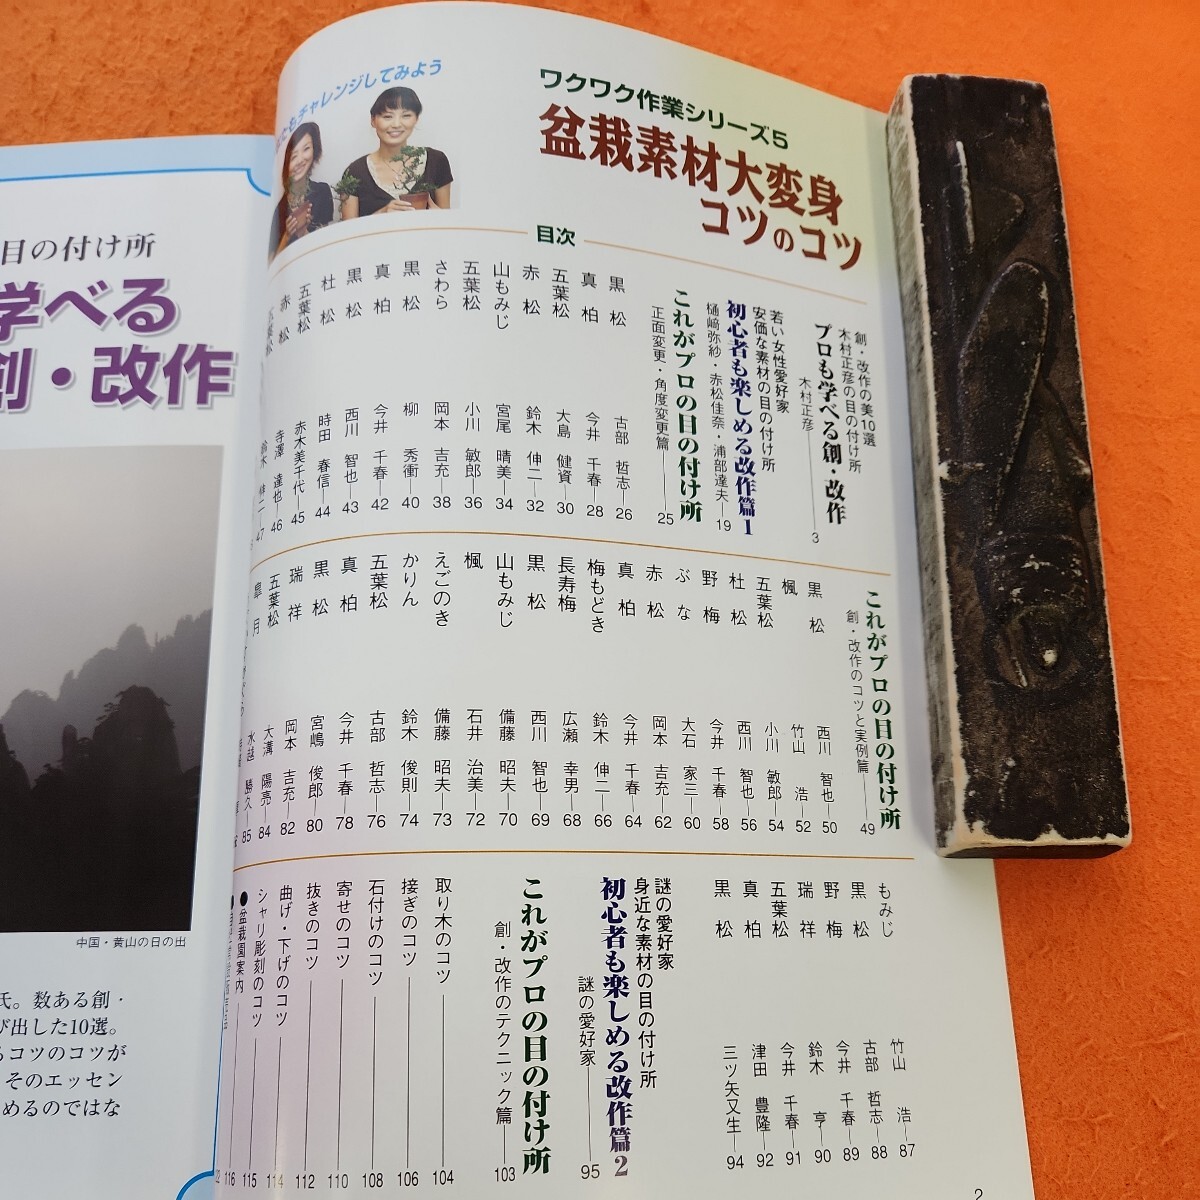 ワクワク作業シリーズ5
盆栽素材大変身
コツのコツ
もチャレンジしてみよう
目次
創・改作の美10選
木村正彦の目の付け所
プロも学べる創・改作
木村正彦 3
若い女性愛好家
安価な素材の目の付け所
初心者も楽しめる改作篇1
樋﨑弥紗・赤松佳奈・浦部達夫 19
これがプロの目の付け所
正面変更・角度変更篇 25
黒松 古部 哲志 26
真柏 今井 千春 28
五葉松 大島 健資 30
赤松 鈴木 伸二 32
山もみじ 宮尾 晴美 34
五葉松 小川 敏郎 36
さわら 岡本 吉充 38
黒松 柳 秀衝 40
真柏 今井 千春 42
黒松 西川 智也 43
杜松 時田 春信 44
五葉松 赤木美千代 45
赤松 寺澤 達也 46
鈴木 伸二 47
これがプロの目の付け所
創・改作のコツと実例篇 49
黒松 西川 智也 50
楓 竹山 浩 52
五葉松 小川 敏郎 54
杜松 西川 智也 56
野梅 今井 千春 58
ぶな 大石 家三 60
赤松 岡本 吉充 62
真柏 今井 千春 64
梅もどき 鈴木 伸二 66
長寿梅 広瀬 幸男 68
黒松 西川 智也 69
山もみじ 備藤 昭夫 70
楓 石井 治美 72
えごのき 備藤 昭夫 73
かりん 鈴木 俊則 74
五葉松 古部 哲志 76
真柏 今井 千春 78
黒松 宮嶋 俊郎 80
瑞祥 岡本 吉充 82
五葉松 大溝 陽亮 84
皐月 水越 勝久 85
もみじ 竹山 浩 87
黒松 古部 哲志 88
野梅 今井 千春 89
瑞祥 鈴木 亨 90
五葉松 今井 千春 91
真柏 津田 豊隆 92
黒松 三ツ矢又生 94
謎の愛好家
身近な素材の目の付け所
初心者も楽しめる改作篇2
謎の愛好家 95
これがプロの目の付け所
創・改作のテクニック篇 103
取り木のコツ 104
接ぎのコツ 106
石付けのコツ 108
寄せのコツ 110
抜きのコツ 112
曲げ・下げのコツ 114
シャリ彫刻のコツ 115
●盆栽園案内 116
2
目の付け所
学べる
創・改作
中国・黄山の日の出
氏。数ある創・
び出した10選。
るコツのコツが
そのエッセン
めるのではな